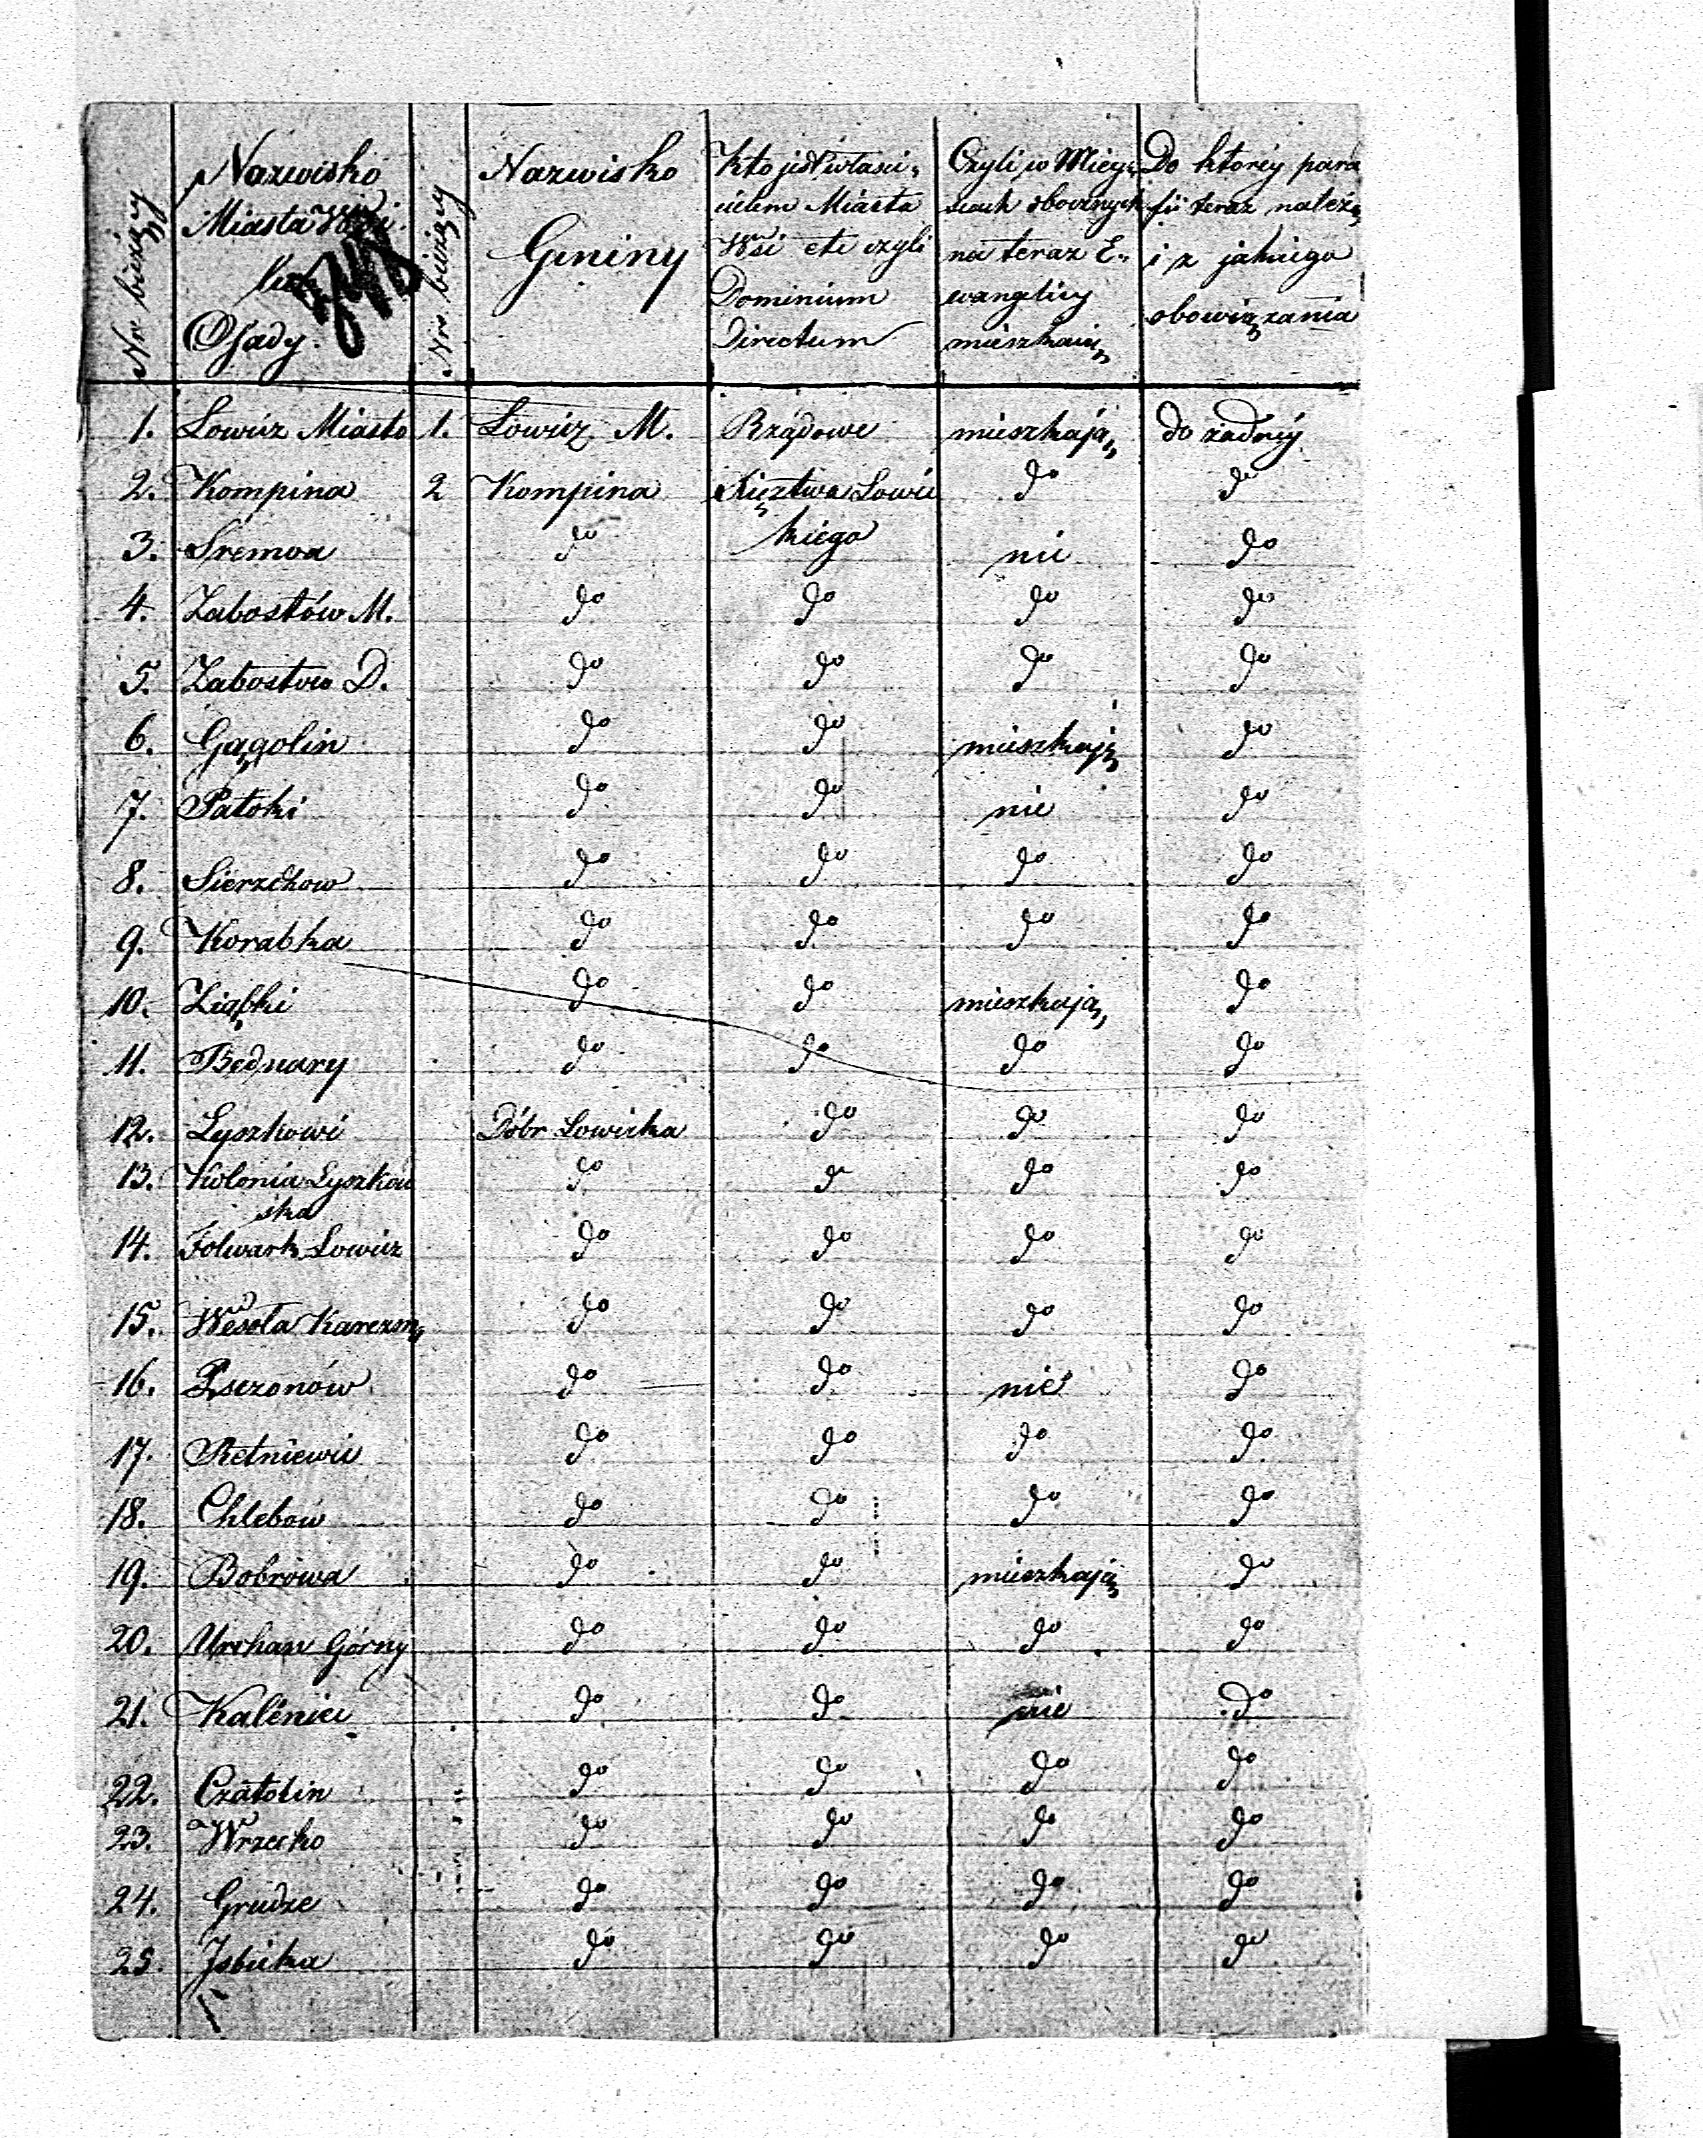 Nro bieżący
Nazwisko
Miasta Wsi
lub
Osady.
Nro bieżący
Nazwisko
Gminy
Kto jest właści„
cielem Miasta
Wsi etc czyli
Dominium
Directum
Czyli w Miey„
scach obocznych
na teraz E„
wangelicy
mieszkaią
Do ktorey para
fii teraz należą
i z jakiego
obowiązania
1. Łowicz Miasto 1. Łowicz M. Rządowe mieszkają do żadney
2. Kompina 2 Kompina Xięztwa Łowic do do
3. Sremva do kiego nie do
4. Zabostów M. do do do do
5. Zabostow D. do do do do
6. Gągolin do do mieszkają do
7. Patoki do do nie do
8. Sierzchow do do do do
9. Korabka do do do do
10. Ziąbki do do mieszkają do
11. Bednary do do do do
12. Łyszkowi Dóbr Łowicka do do do
13. Kolonia Łyszkow do do do do
ska
14. Folwark Łowicz do do do do
15. Wesoła Karczma do do do do
16. Psczonów do do nie do
17. Retniewic do do do do
18. Chlebów do do do do
19. Bobrowa do do mieszkają do
20. Urchan Górny do do do do
21. Kalenice do do nie do
22. Czatolin do do do do
23. Wrzecko do do do do
24. Grudze do do do do
25. Isbicka do do do do